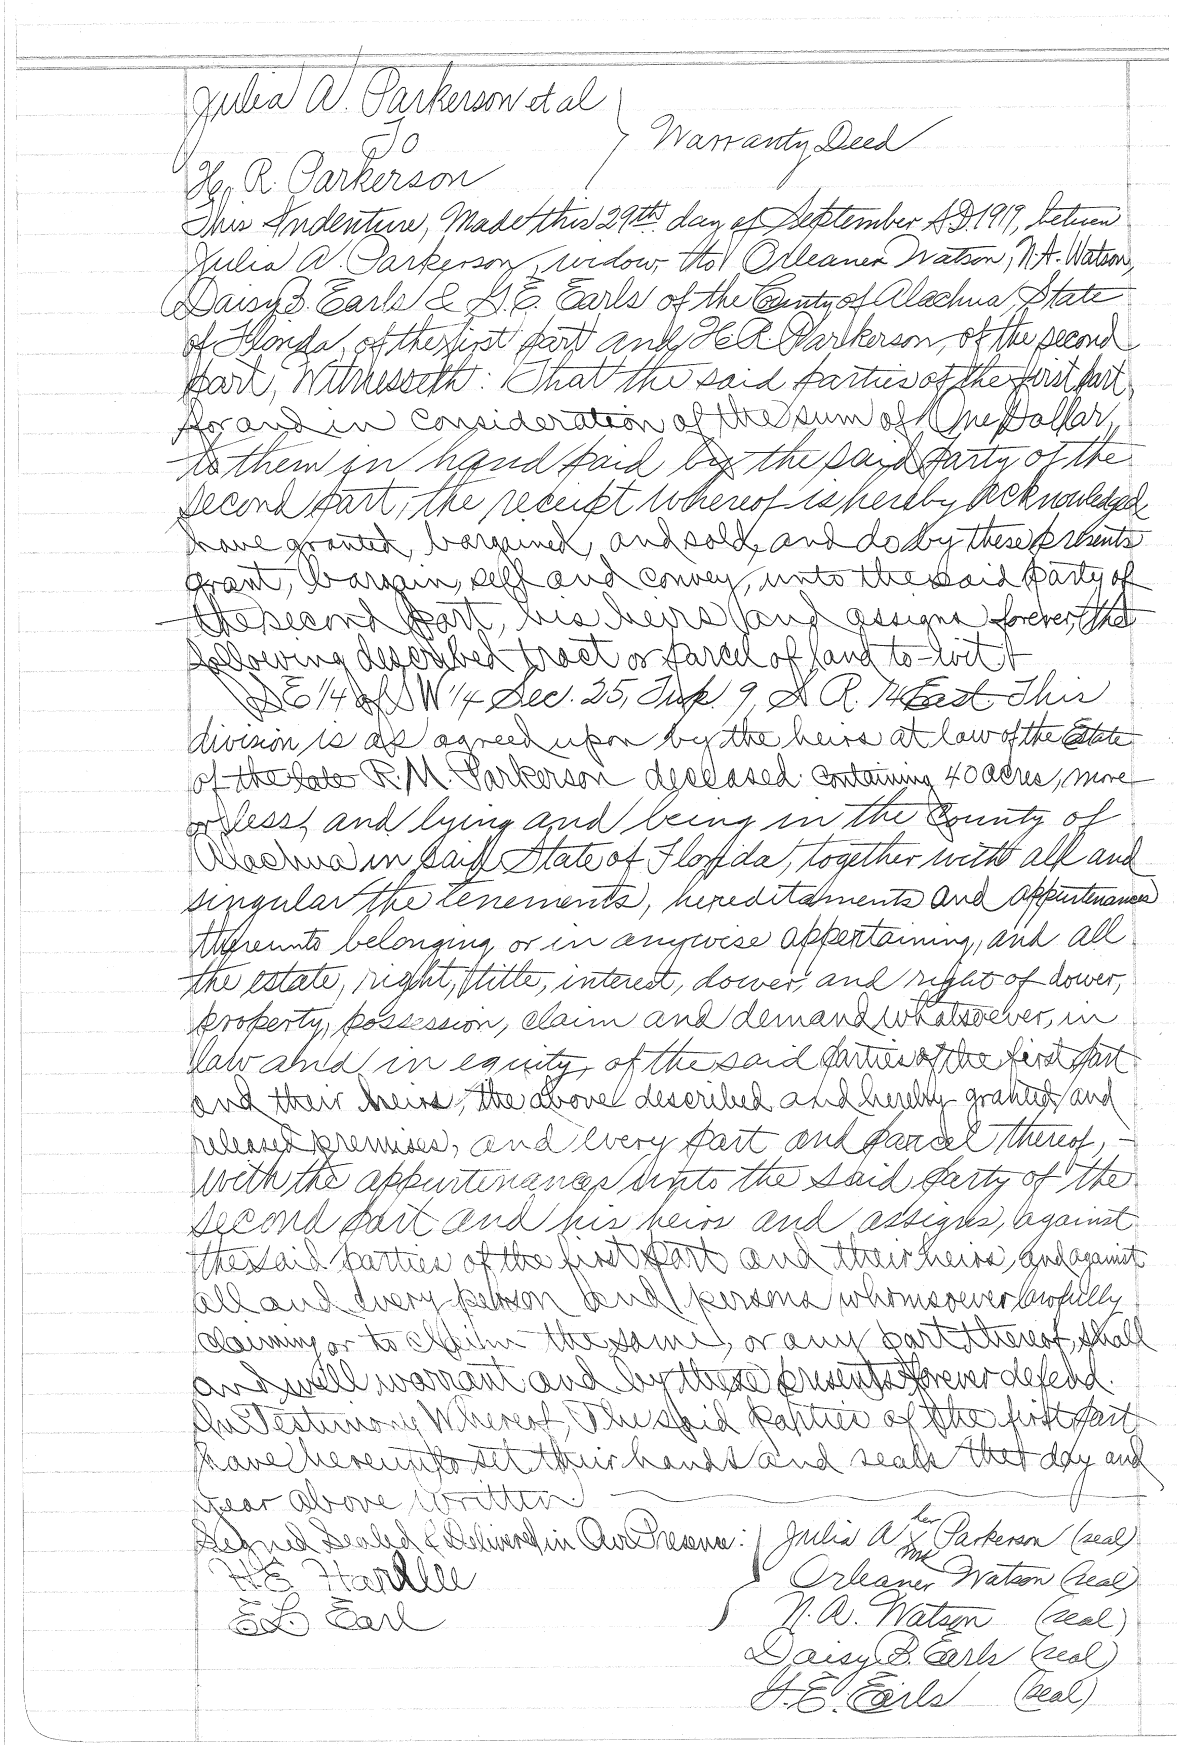 Julia A. Parkerson et al
To
Warranty Deed
H. R. Parkerson
This Indenture, Made this 29th day of September A.D. 1919, between
Julia A. Parkerson, widow, Orleaner Watson, N.A. Watson,
Daisy B. Earls & E. Earls of the County of Alachua State
of Florida, of the first part and H.R. Parkerson, of the second
part, Witnesseth: That the said parties of the first part,
for and in consideration of the sum of One Dollar,
to them in hand paid by the said party of the
second part, the receipt whereof is hereby acknowledged,
have granted, bargained, and sold, and do by these presents
grant, bargain, sell and convey, unto the said party of
the second part, his heirs and assigns forever, the
following described tract or parcel of land to-wit
SE 1/4 of SW 1/4 Sec. 25, Twp. 9, S R. East This
division is as agreed upon by the heirs at law of the Estate
of the late R.M. Parkerson deceased containing 40 acres, more
or less, and lying and being in the County of
Alachua in said State of Florida, together with all and
singular the tenements, hereditaments and appurtenances
thereunto belonging or in anywise appertaining, and all
the estate, right, title, interest, dower, and right of dower,
property, possession, claim and demand whatsoever, in
law and in equity, of the said parties of the first part
and their heirs, the above described and hereby granted and
released premises, and every part and parcel thereof, -
with the appurtenances unto the said party of the
second part and his heirs and assigns, against
the said parties of the first part and their heirs, and against
all and every person and persons whomsoever lawfully
claiming or to claim the same, or any part thereof, shall
and will warrant and by these presents forever defend.
In Testimony Whereof, The said parties of the first part
have hereunto set their hands and seals the day and
year above written
Signed Sealed & Delivered in Our Presence:
Julia A her X mk Parkerson (seal)
H E
Orleaner Watson (seal)
E L Earl
N. A. Watson (seal)
Daisy B. Earls (seal)
E. Earls (seal)